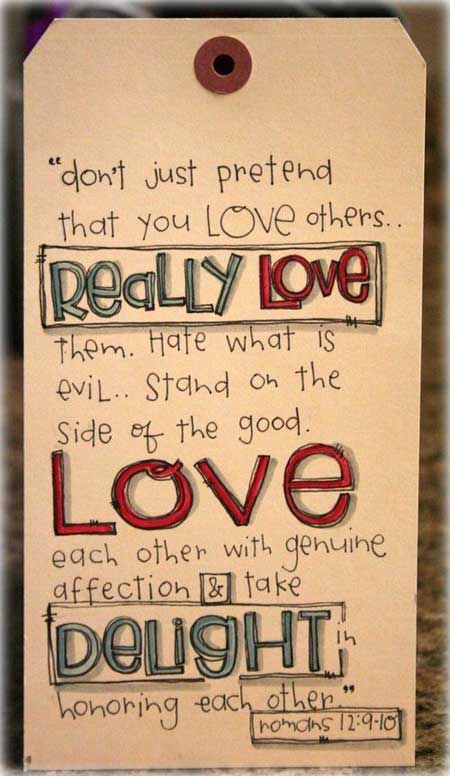 "don't just pretend
that you LOVE others..
ReaLLY LOVE
them. Hate what is
eviL.. Stand on the
side of the good.
LOVe
each other with genuine
affection & take
DeLigHT in
honoring each other."
romans 12:9-10